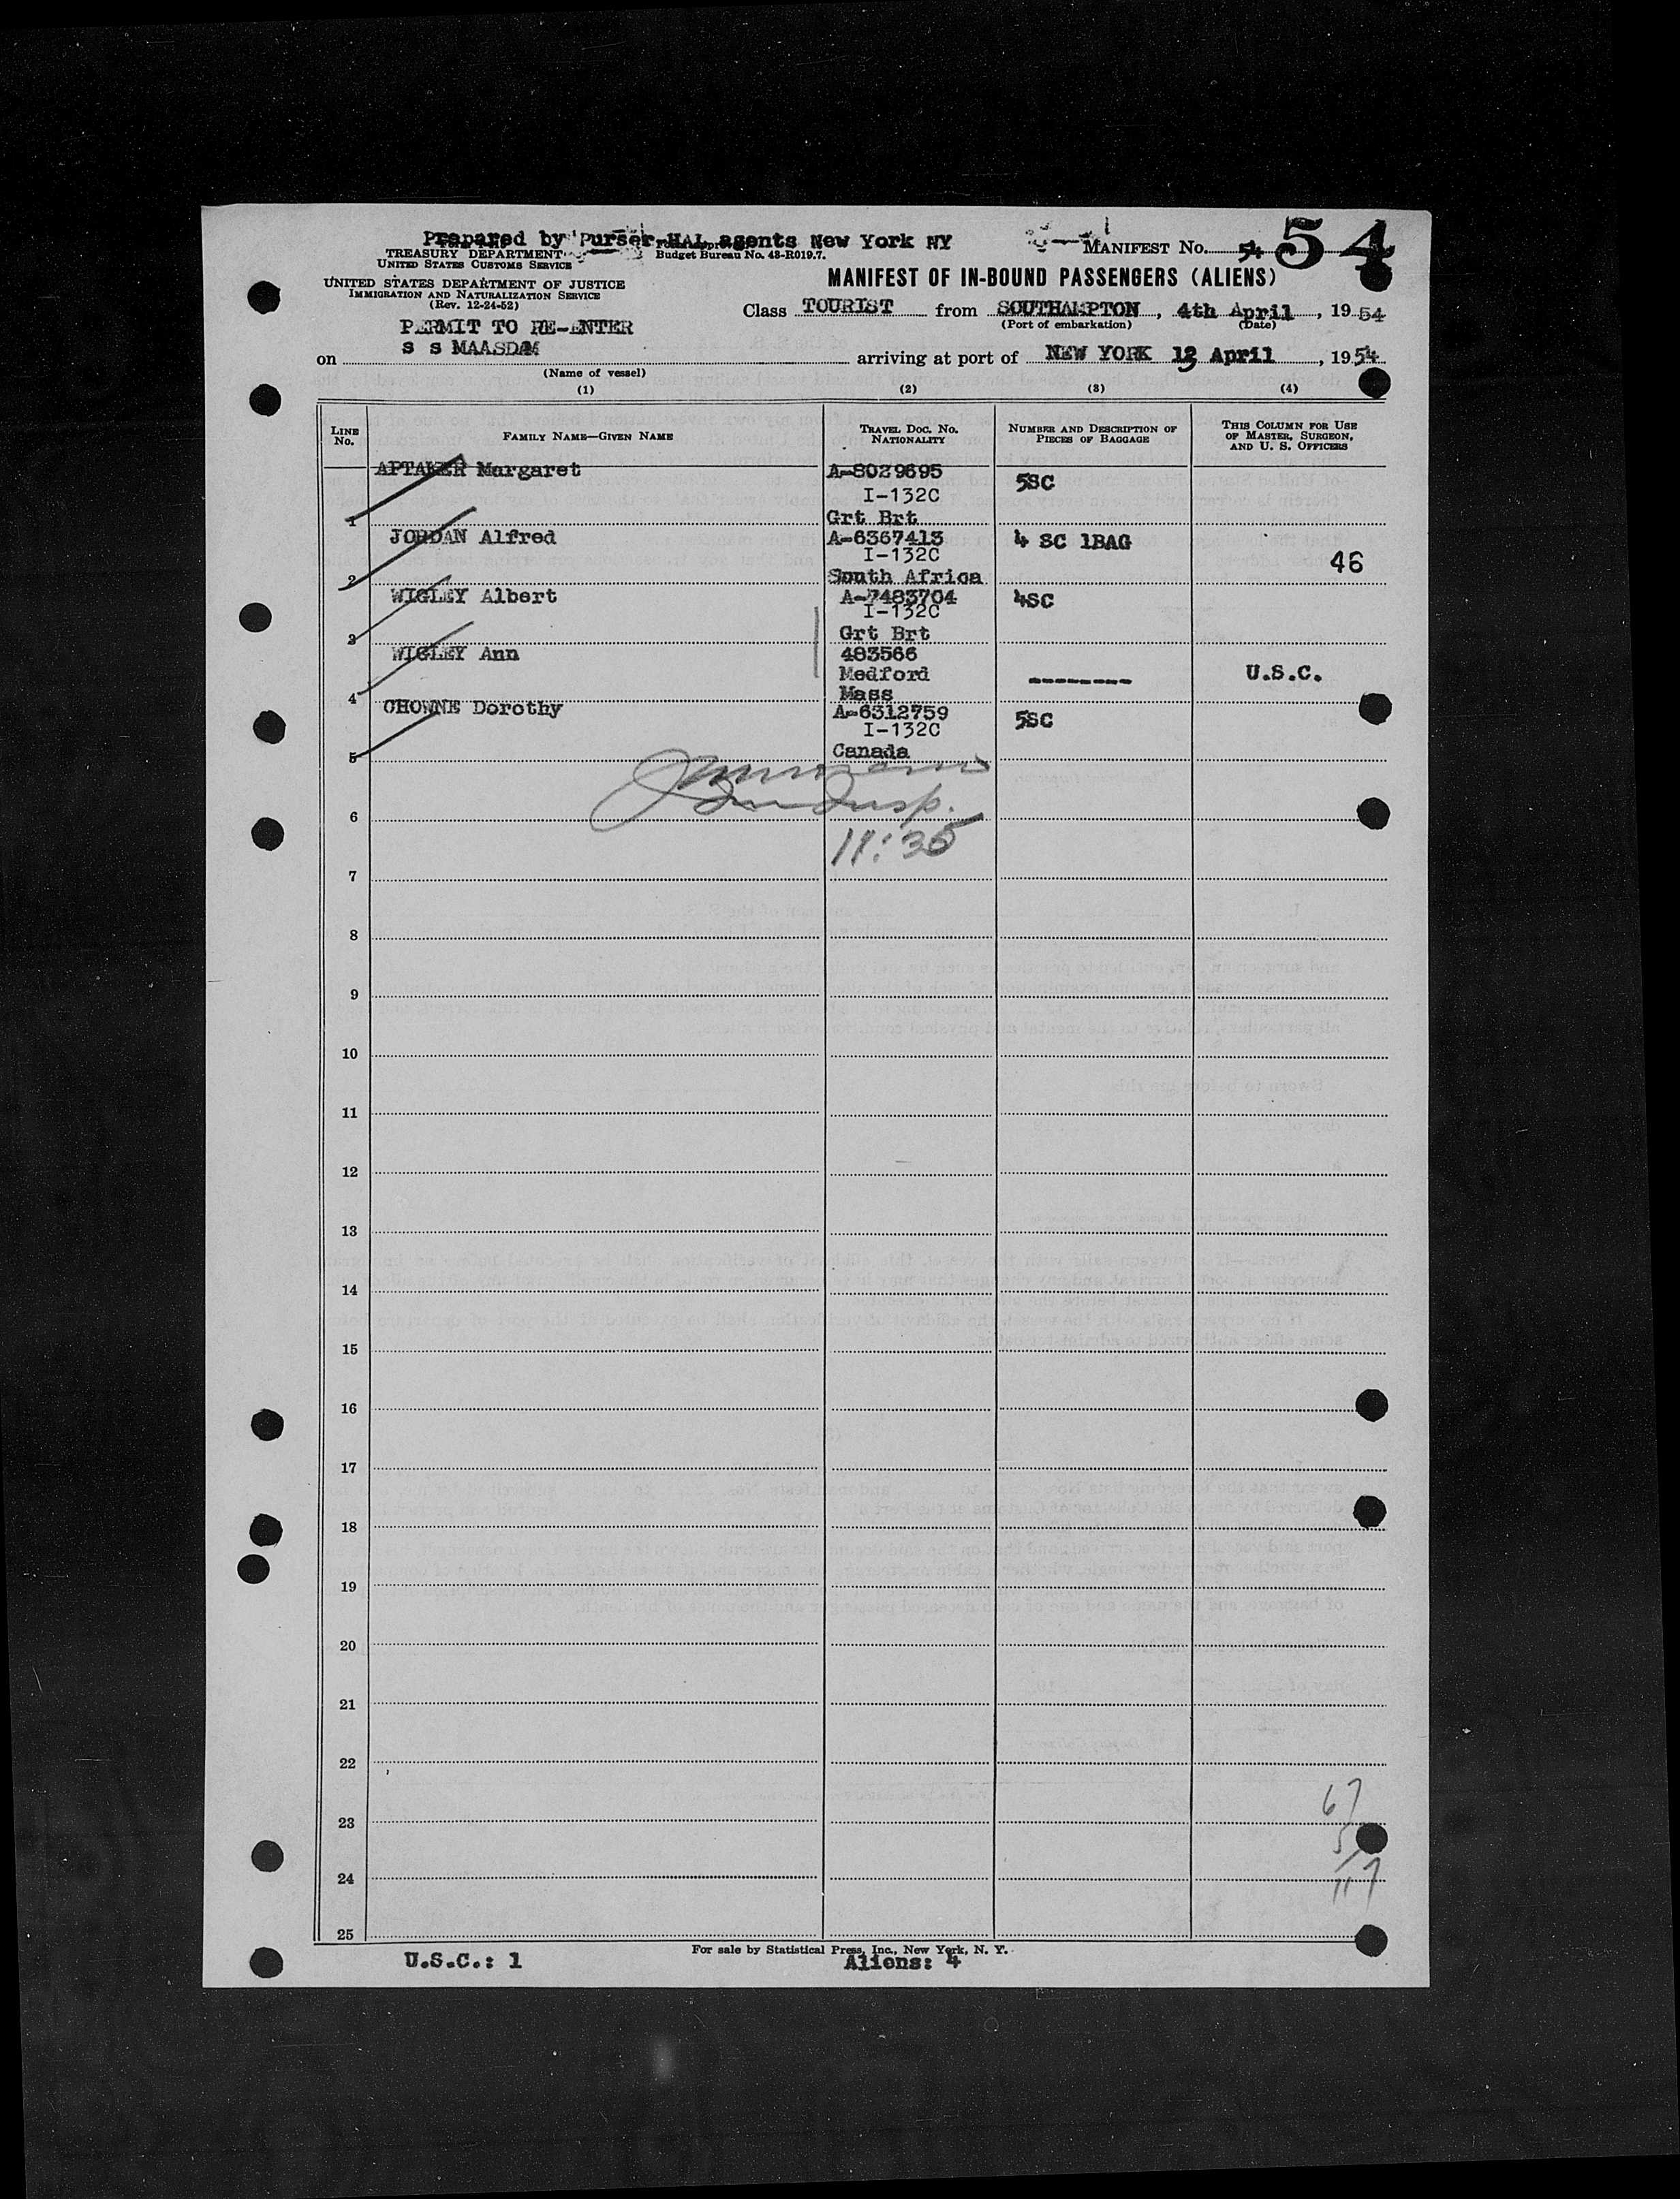 Prepared by Purser HAL agents New York NY
MANIFEST No. 54 54
TREASURY DEPARTMENT
UNITED STATES CUSTOMS SERVICE
Budget Bureau No. 43-R019.7.
UNITED STATES DEPARTMENT OF JUSTICE
IMMIGRATION AND NATURALIZATION SERVICE
(Rev. 12-24-52)
MANIFEST OF IN-BOUND PASSENGERS (ALIENS)
Class TOURIST from SOUTHAMPTON, 4th April, 1954
(Port of embarkation) (Date)
PERMIT TO RE-ENTER
on s s MAASDAM arriving at port of NEW YORK April, 1954
(Name of vessel)
(1) (2) (3) (4)
LINE No. FAMILY NAME—GIVEN NAME TRAVEL DOC. No. NATIONALITY NUMBER AND DESCRIPTION OF PIECES OF BAGGAGE THIS COLUMN FOR USE OF MASTER, SURGEON, AND U. S. OFFICERS
APTAKER Margaret A-8029695 5SC
I-132C
1 Grt Brt
JORDAN Alfred A-6367413 4 SC 1BAG
I-132C 46
2 South Africa
WIGLEY Albert A-7483704 4SC
I-132C
3 Grt Brt
WIGLEY Ann 483566
Medford -------- U.S.C.
4 Mass
CHOWNE Dorothy A-6312759 5SC
I-132C
5 Canada
Insp.
6
11:35
7
8
9
10
11
12
13
14
15
16
17
18
19
20
21
22
23
24
25
For sale by Statistical Press, Inc., New York, N. Y.
U.S.C.: 1 Aliens: 4